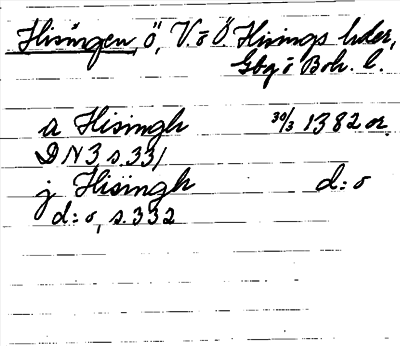 Hisingen, ö, V. o Ö Hisings hder,
Gbg o Boh. l.
a Hisingh 30/3 1382 or.
DN3 s. 331
j Hisingh d:o
d:o, s. 332